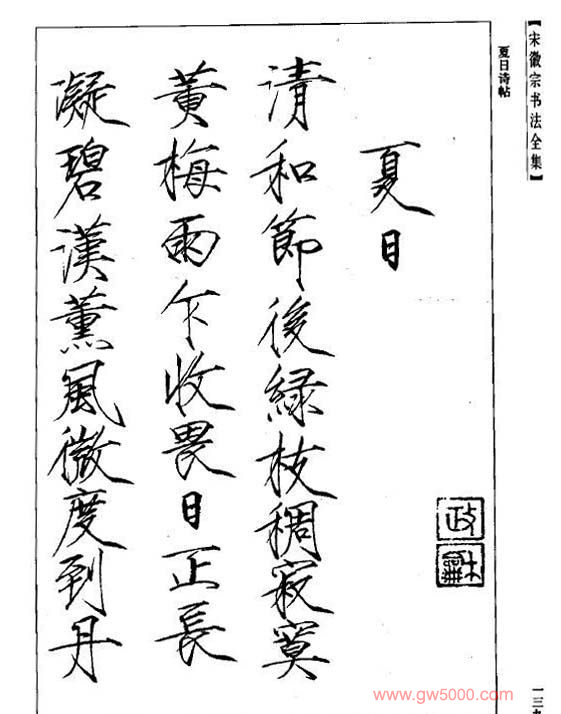 【宋徽宗书法全集】
夏日诗帖
夏日
清和節後綠枝稠寂寞
黃梅雨乍收畏日正長
凝碧漢薰風微度到丹
政和
一三九
www.gw5000.com